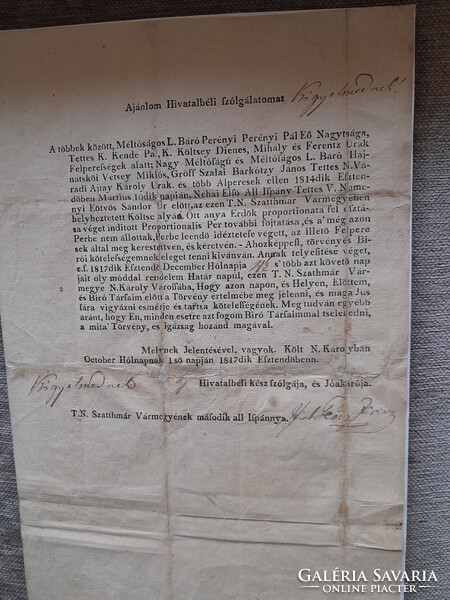 Ajánlom Hivatalbéli szólgálatomat Kigyelmednek!
A többek között, Méltóságos L. Báró Perényi Perényi Pál Eő Nagysága,
Tettes K. Kende Pál, K. Költsey Dienes, Mihály és Ferentz Urak
Felperességek alatt; Nagy Méltóságú és Méltóságos L. Báró Haj-
natskői Vétsey Miklós, Gróff Szalai Barkótzy János Tettes N. Vá-
radi Ajtay Károly Urak, és több Alperesek ellen 1814dik Eszten-
dőben Martius 1ődik napján, Néhai Első All Ispány Tettes V. Namé-
nyi Eötvös Sándor Úr előtt, az ezen T. N. Szatthmár Vármegyében
helyheztetett Költse alyán, Ött anya Erdők proportionáta fel osztá-
sa véget indított Proportionalis Per további fojtatása, és a' még azon
Perbe nem állottak, Perbe leendő idéztetése végett, az illető Felpere-
sek által meg kerestettvén, és kéretvén. - Ahozképpest, törvényes Bi-
rói kötelességemnek eleget tenni kivánván. Annak telyesitése véget,
e.f. 1817dik Esztendő December Hólnapja 9k s' több azt követő nap-
jait oly móddal rendelem Határ napul, ezen T. N. Szathmár Vár-
megye N. Károly Várossába, Hogy azon napon, és Helyen, Előttem,
és Biró Társaim előtt a Törvény értelmébe meg jelenni, és maga Jus-
sára vigyázni esmérje és tartsa kötelességének. Meg tudván egyébb
aránt, hogy Én, minden esetre azt fogom Biró Társaimmal tselekedni,
a mita' Törvény, és igazság hozánd magával.
Melynek Jelentésével, vagyok. Költ N. Károlyban
October Hólnapnak 1ső napján 1817dik Esztendőbenn.
Kigyelmednek
Hivatalbéli kész szolgája, és Jóakarója.
T. N. Szatthmár Vármegyének második all Ispánnya.
GALÉRIA SAVARIA
ONLINE PIACTÉR